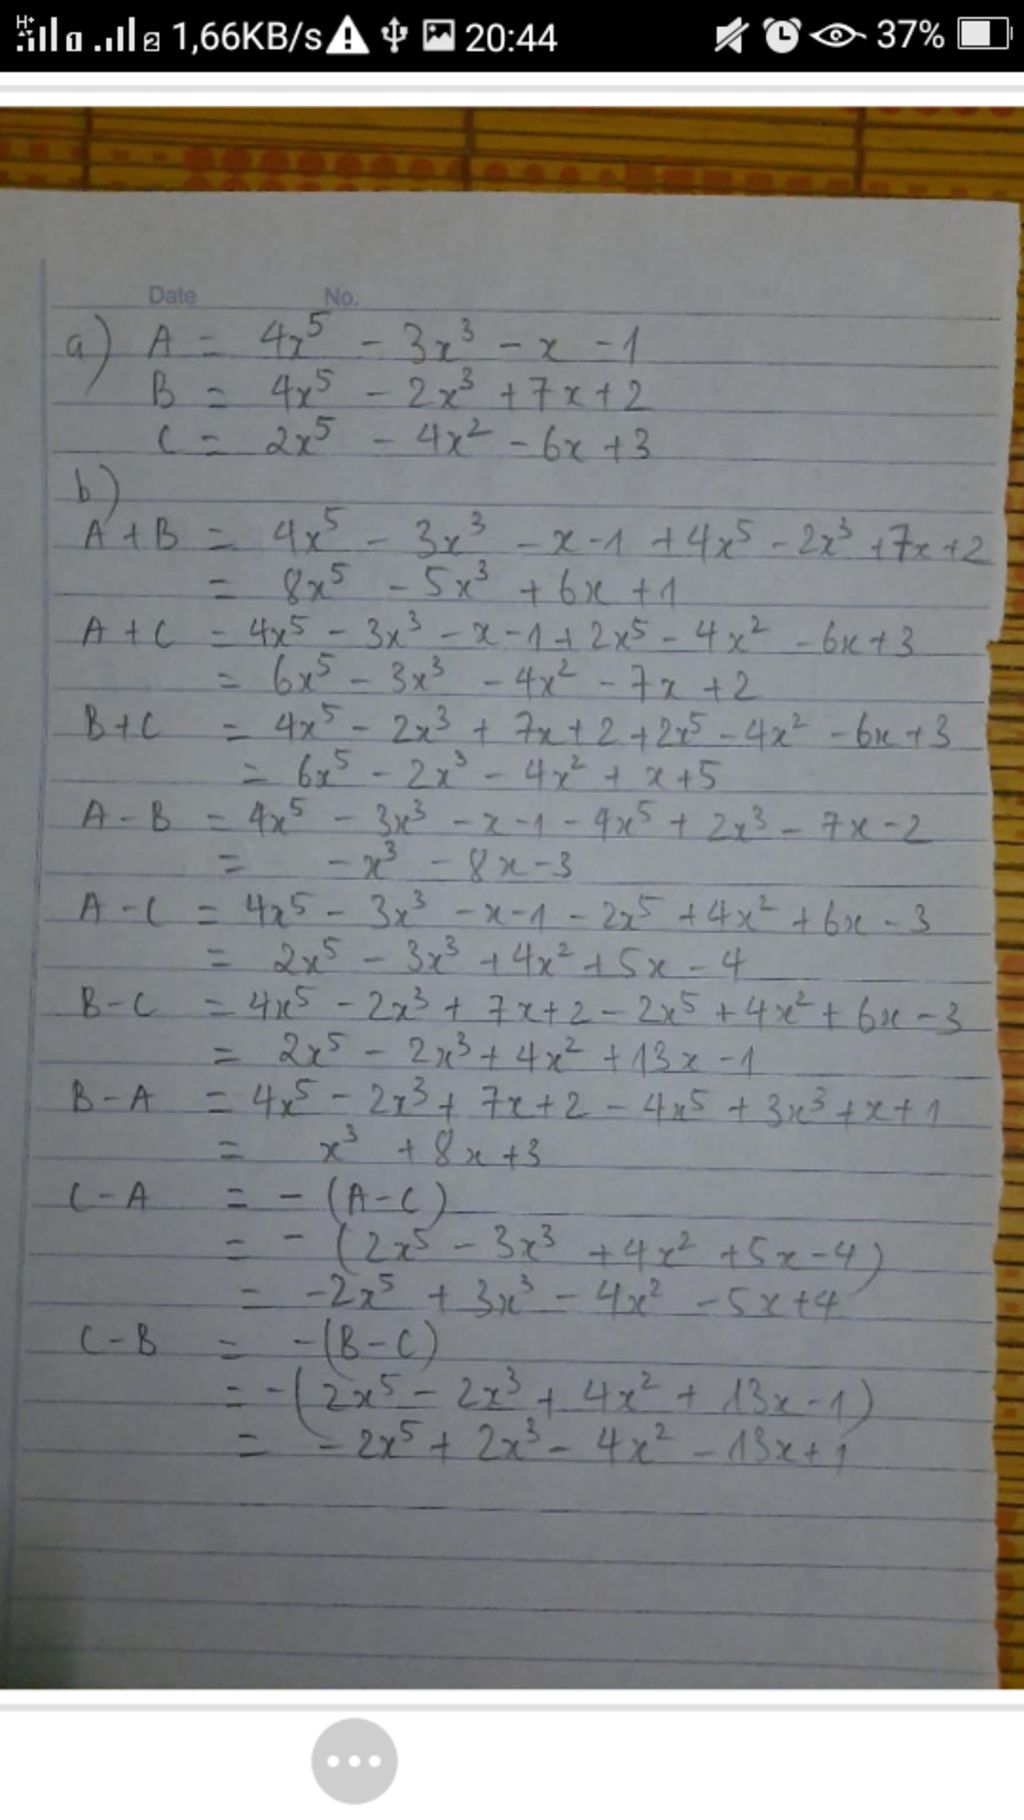 H+ 1 2 1,66KB/s 20:44 37%
Date No.
a) A = 4x⁵ - 3x³ - x - 1
B = 4x⁵ - 2x³ + 7x + 2
C = 2x⁵ - 4x² - 6x + 3
b)
A + B = 4x⁵ - 3x³ - x - 1 + 4x⁵ - 2x³ + 7x + 2
= 8x⁵ - 5x³ + 6x + 1
A + C = 4x⁵ - 3x³ - x - 1 + 2x⁵ - 4x² - 6x + 3
= 6x⁵ - 3x³ - 4x² - 7x + 2
B + C = 4x⁵ - 2x³ + 7x + 2 + 2x⁵ - 4x² - 6x + 3
= 6x⁵ - 2x³ - 4x² + x + 5
A - B = 4x⁵ - 3x³ - x - 1 - 4x⁵ + 2x³ - 7x - 2
= - x³ - 8x - 3
A - C = 4x⁵ - 3x³ - x - 1 - 2x⁵ + 4x² + 6x - 3
= 2x⁵ - 3x³ + 4x² + 5x - 4
B - C = 4x⁵ - 2x³ + 7x + 2 - 2x⁵ + 4x² + 6x - 3
= 2x⁵ - 2x³ + 4x² + 13x - 1
B - A = 4x⁵ - 2x³ + 7x + 2 - 4x⁵ + 3x³ + x + 1
= x³ + 8x + 3
C - A = - (A - C)
= - (2x⁵ - 3x³ + 4x² + 5x - 4)
= -2x⁵ + 3x³ - 4x² - 5x + 4
C - B = - (B - C)
= - (2x⁵ - 2x³ + 4x² + 13x - 1)
= - 2x⁵ + 2x³ - 4x² - 13x + 1